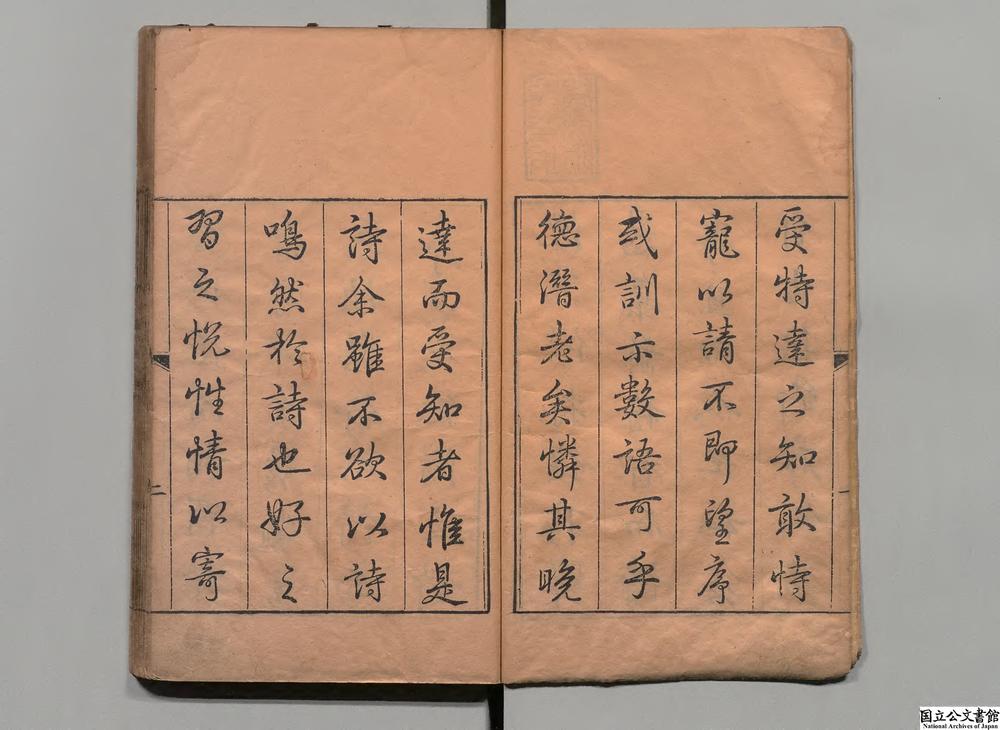 受特達之知敢恃
寵以請不即望序
或訓示數語可乎
德潛老矣憐其晚
達而受知者惟是
詩余雖不欲以詩
鳴然於詩也好之
習之悅性情以寄
一
二
国立公文書館
National Archives of Japan